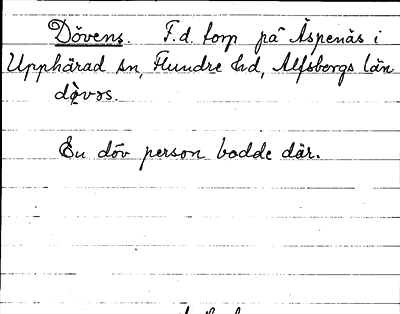 Dövens. F.d. torp på Äspenäs i
Upphärad sn, Flundre hd, Älfsborgs län
En döv person bodde där.